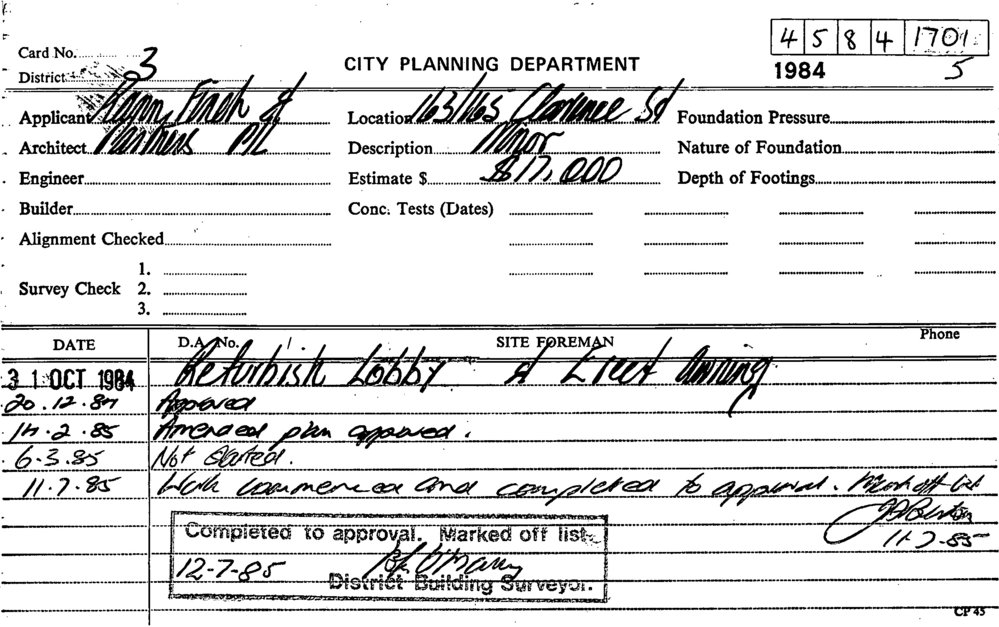 4 5 8 4 1701
Card No. 3
CITY PLANNING DEPARTMENT
1984 5
District
Applicant Finch &
Location 163/165 Clarence St
Foundation Pressure
Architect Partners PL
Description Minor
Nature of Foundation
Engineer
Estimate $ $17,000
Depth of Footings
Builder
Conc. Tests (Dates)
Alignment Checked
1.
Survey Check 2.
3.
DATE D.A. No. SITE FOREMAN Phone
31 OCT 1984 Refurbish Lobby & Erect Awning
20.12.84 Approved
14.2.85 Amended plan approved.
6.3.85 Not Started.
11.7.85 Work commenced and completed to approval. Mark off list
11-7-85
Completed to approval. Marked off list.
12-7-85
District Building Surveyor.
CP 45